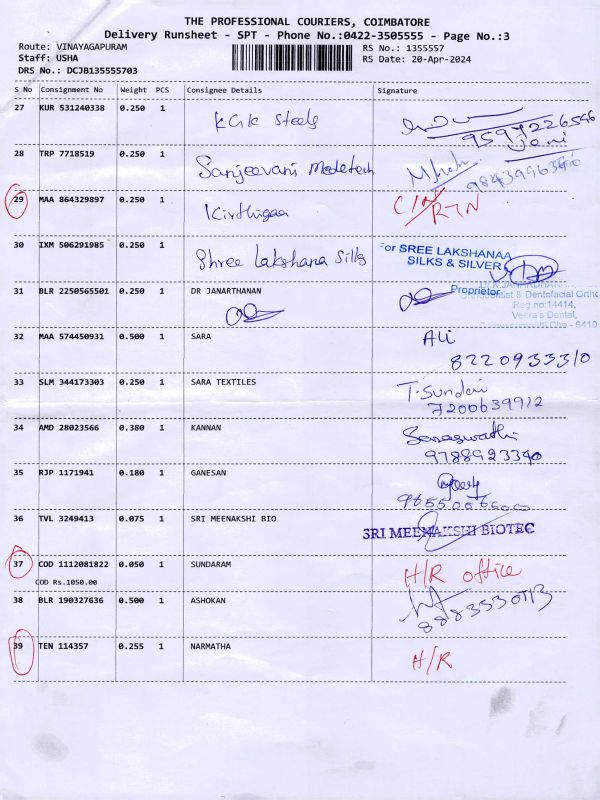 THE PROFESSIONAL COURIERS, COIMBATORE
Delivery Runsheet - SPT - Phone No.:0422-3505555 - Page No.:3
Route: VINAYAGAPURAM
RS No.: 1355557
Staff: USHA
RS Date: 20-Apr-2024
DRS No.: DCJB135555703
S No Consignment No Weight PCS Consignee Details Signature
27 KUR 531240338 0.250 1 KGK Steels
9597226546
Jeni
28 TRP 7718519 0.250 1 Sanjeevani Medetech
29 MAA 864329897 0.250 1 Kirthigaa C/N/RTN
30 IXM 506291985 0.250 1 Shree Lakshana Silks
For SREE LAKSHANAA
SILKS & SILVER
Proprietor
31 BLR 2250565501 0.250 1 DR JANARTHANAN
Orthodontist & Dentofacial Ortho
Reg.no:14414,
Veera's Dental,
32 MAA 574450931 0.500 1 SARA Ali
8220933310
33 SLM 344173303 0.250 1 SARA TEXTILES T. Sundari
7200639912
34 AMD 28023566 0.380 1 KANNAN Saraswathi
9788923390
35 RJP 1171941 0.180 1 GANESAN
36 TVL 3249413 0.075 1 SRI MEENAKSHI BIO SRI MEENAKSHI BIOTEC
37 COD 1112081822 0.050 1 SUNDARAM H/R office
COD Rs.1050.00
38 BLR 190327636 0.500 1 ASHOKAN
39 TEN 114357 0.255 1 NARMATHA H/R